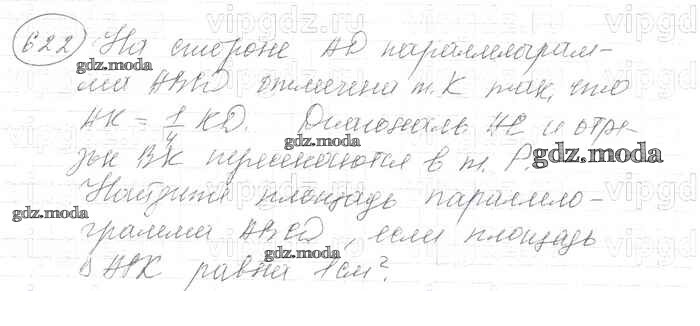 622 На стороне AD параллелограм-
ма ABCD отмечена т. K так, что
AK = 1/4 KD. Диагональ AC и отре-
зок BK пересекаются в т. P.
Найдите площадь параллело-
грамма ABCD, если площадь
△ APK равна 1 см².
gdz.moda
gdz.moda
gdz.moda
gdz.moda
gdz.moda
vipgdz.ru
vipgdz
vipgdz
vipgdz